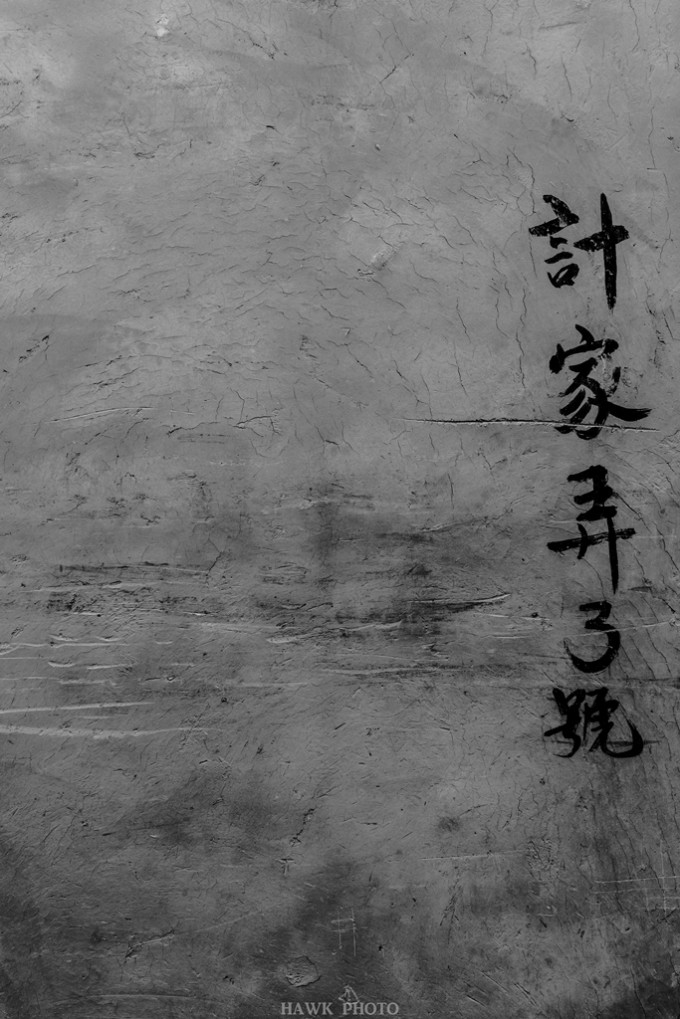 計家弄3號
HAWK PHOTO